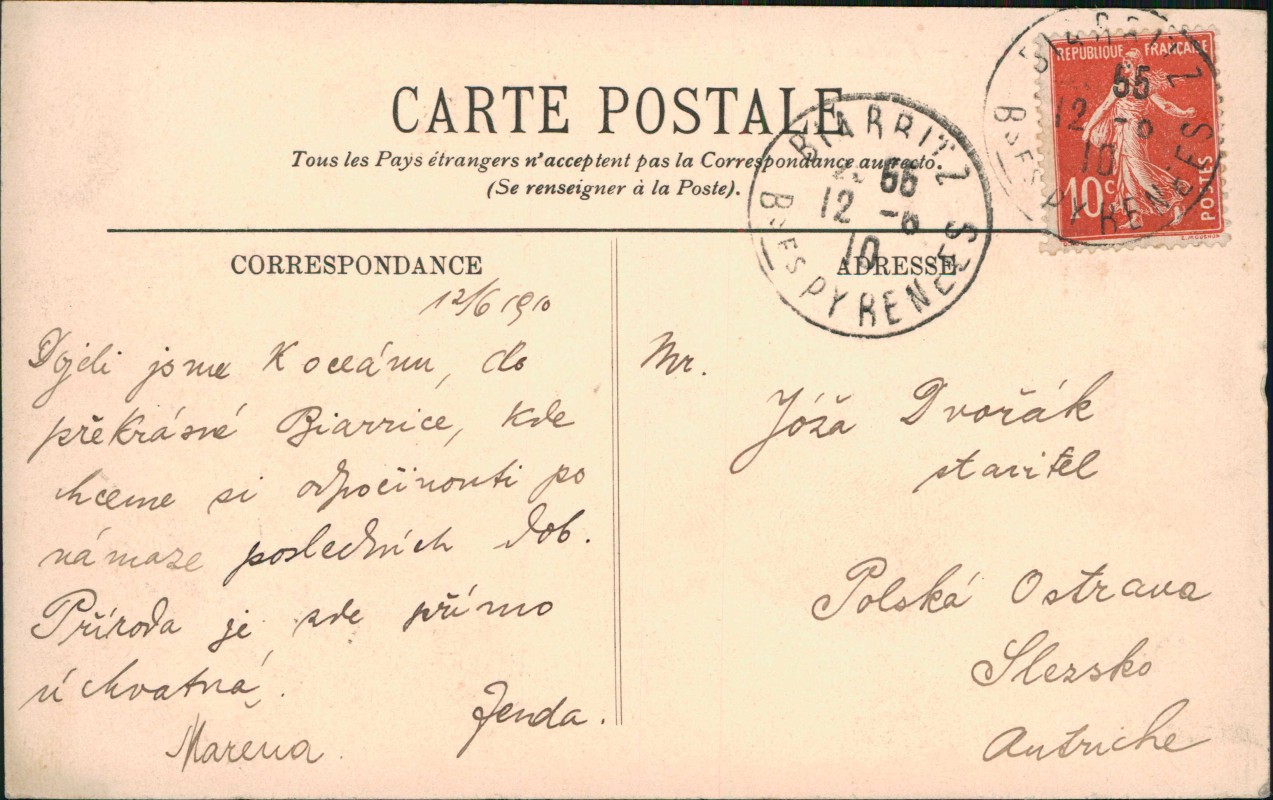 CARTE POSTALE
Tous les Pays étrangers n'acceptent pas la Correspondance au recto.
(Se renseigner à la Poste).
BIARRITZ
55
12 -6
10
BSES PYRENEES
REPUBLIQUE FRANÇAISE
10c
POSTES
BIARRITZ
55
12 -6
10
BSES PYRENEES
CORRESPONDANCE
12/6 1910
Dojeli jsme k oceánu, do
překrásné Biarrice, kde
chceme si odpočinouti po
námaze posledních dob.
Příroda je zde přímo
úchvatná.
Jenda.
Marena.
ADRESSE
Mr.
Jóža Dvořák
stavitel
Polská Ostrava
Slezsko
Autriche